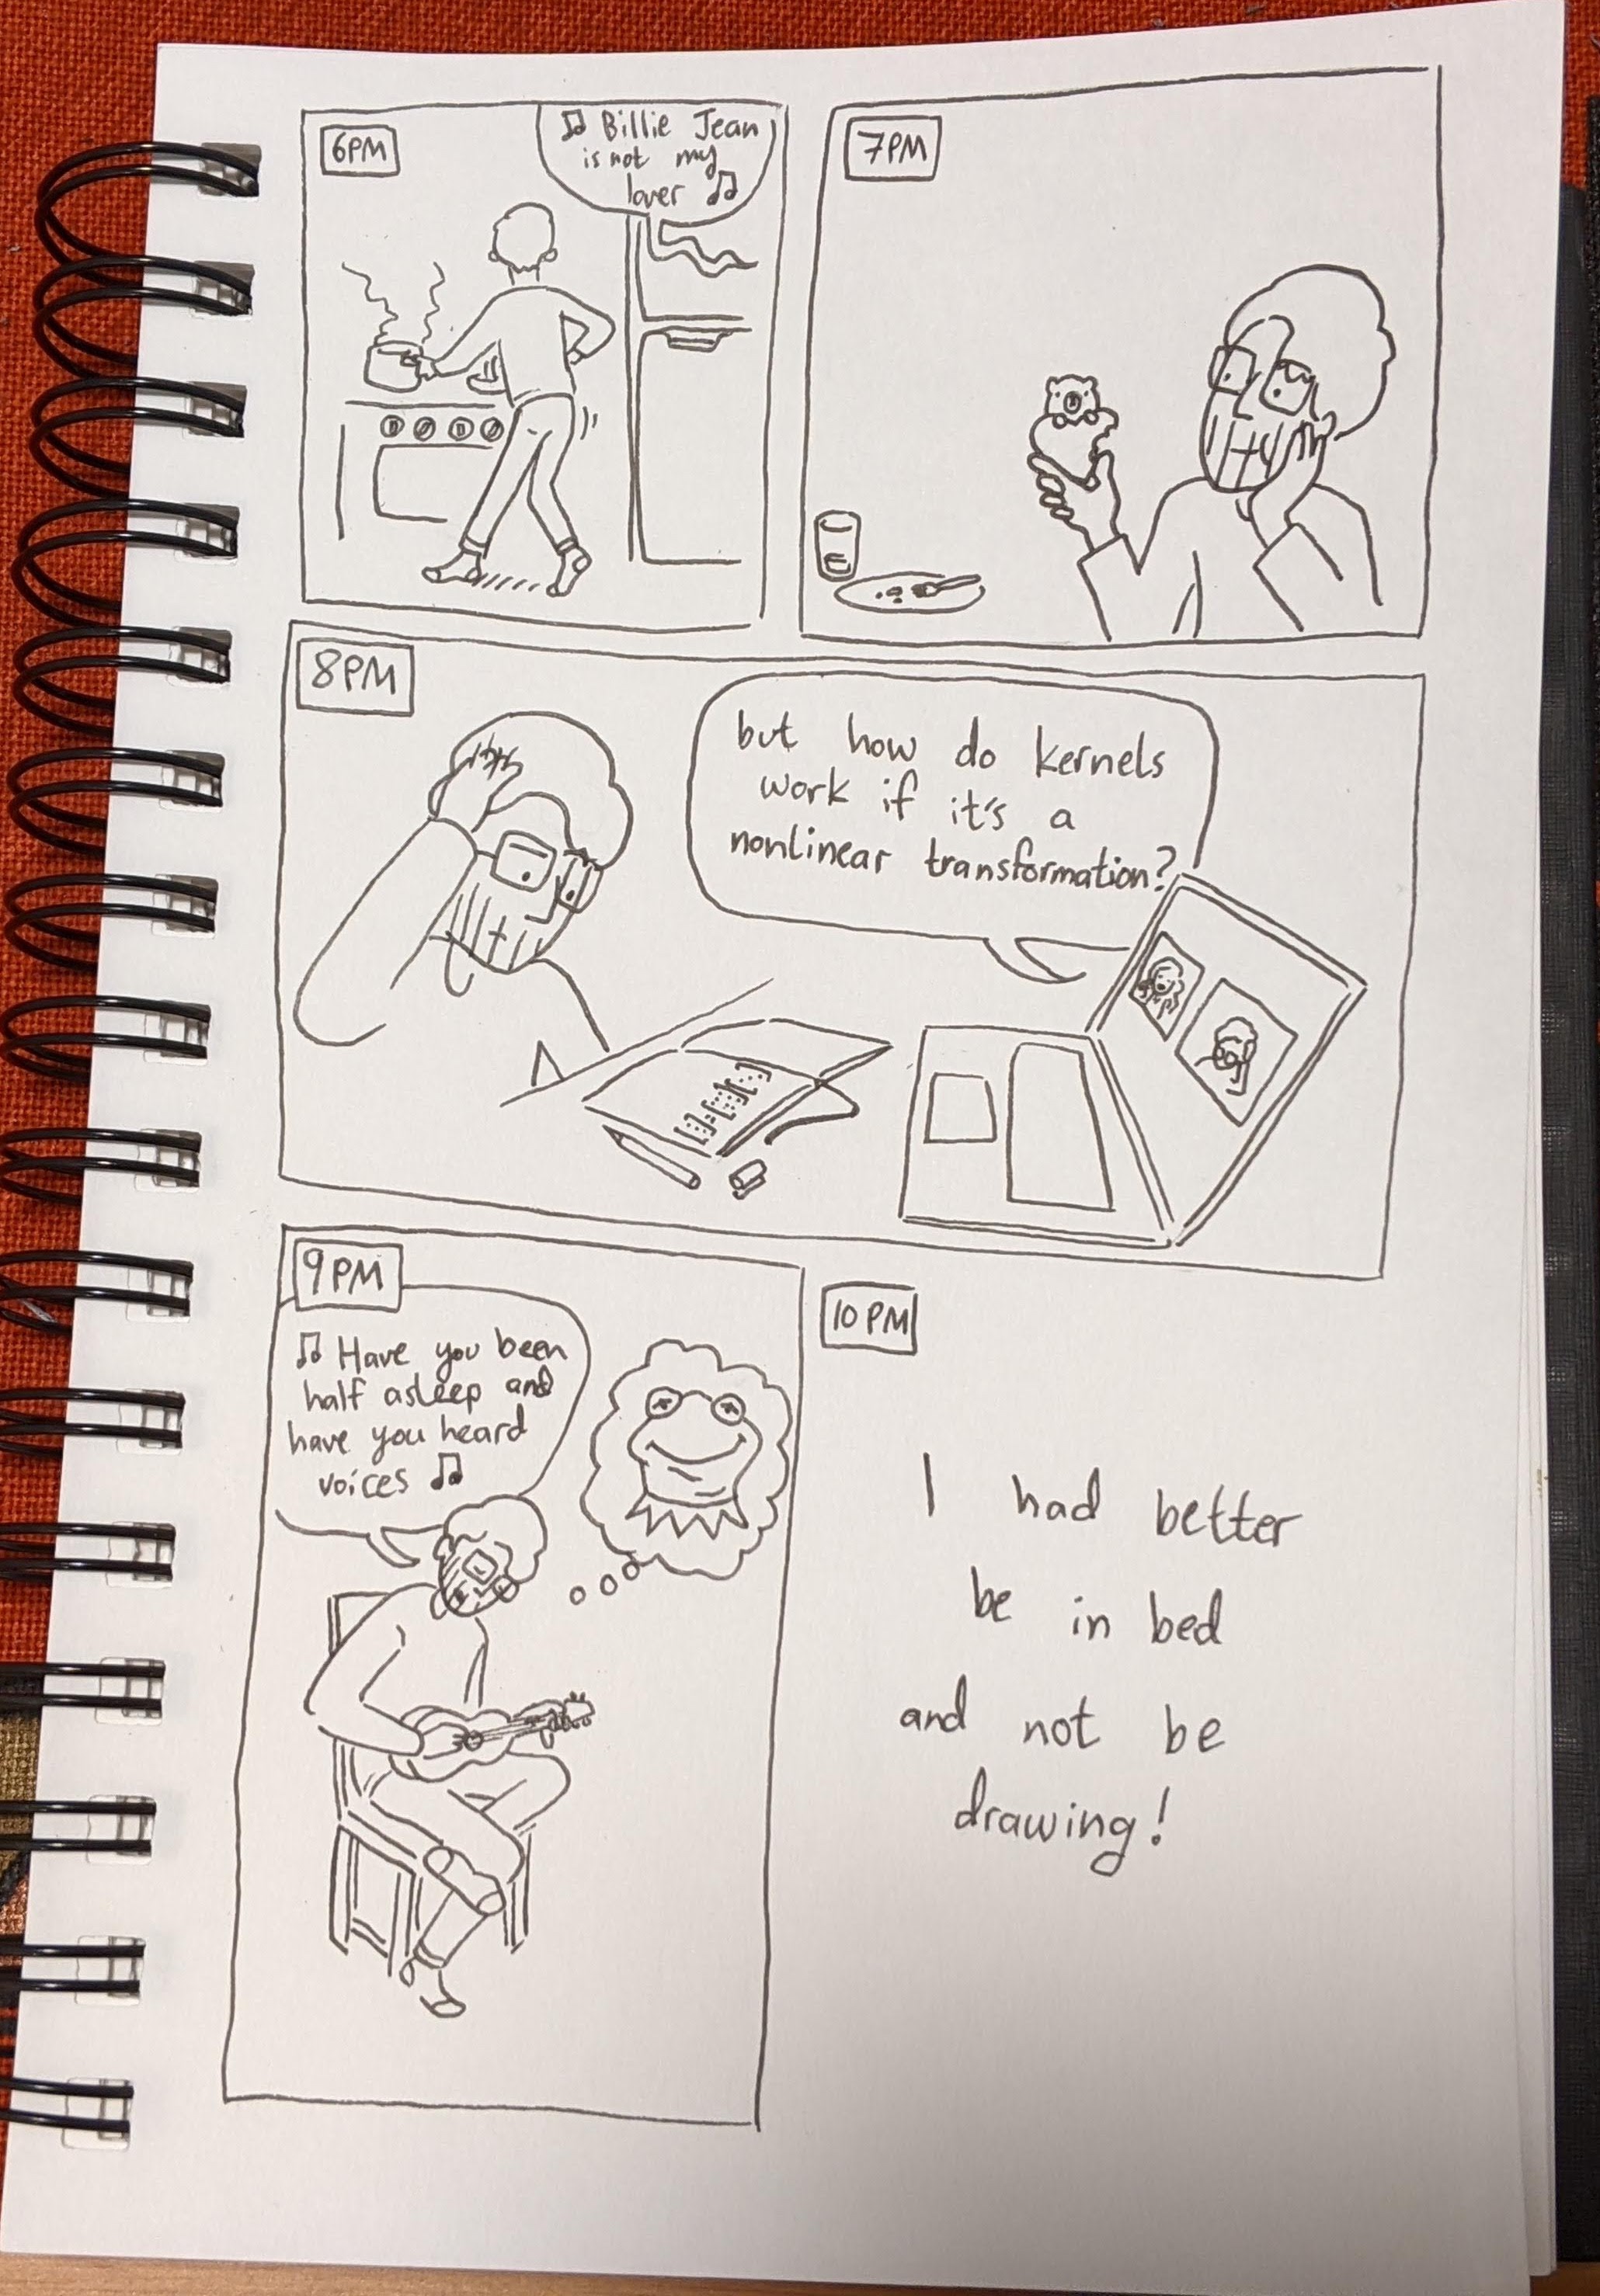 6PM
♫ Billie Jean
is not my
lover ♫
7PM
8PM
but how do kernels
work if it's a
nonlinear transformation?
9PM
♫ Have you been
half asleep and
have you heard
voices ♫
10PM
I had better
be in bed
and not be
drawing!